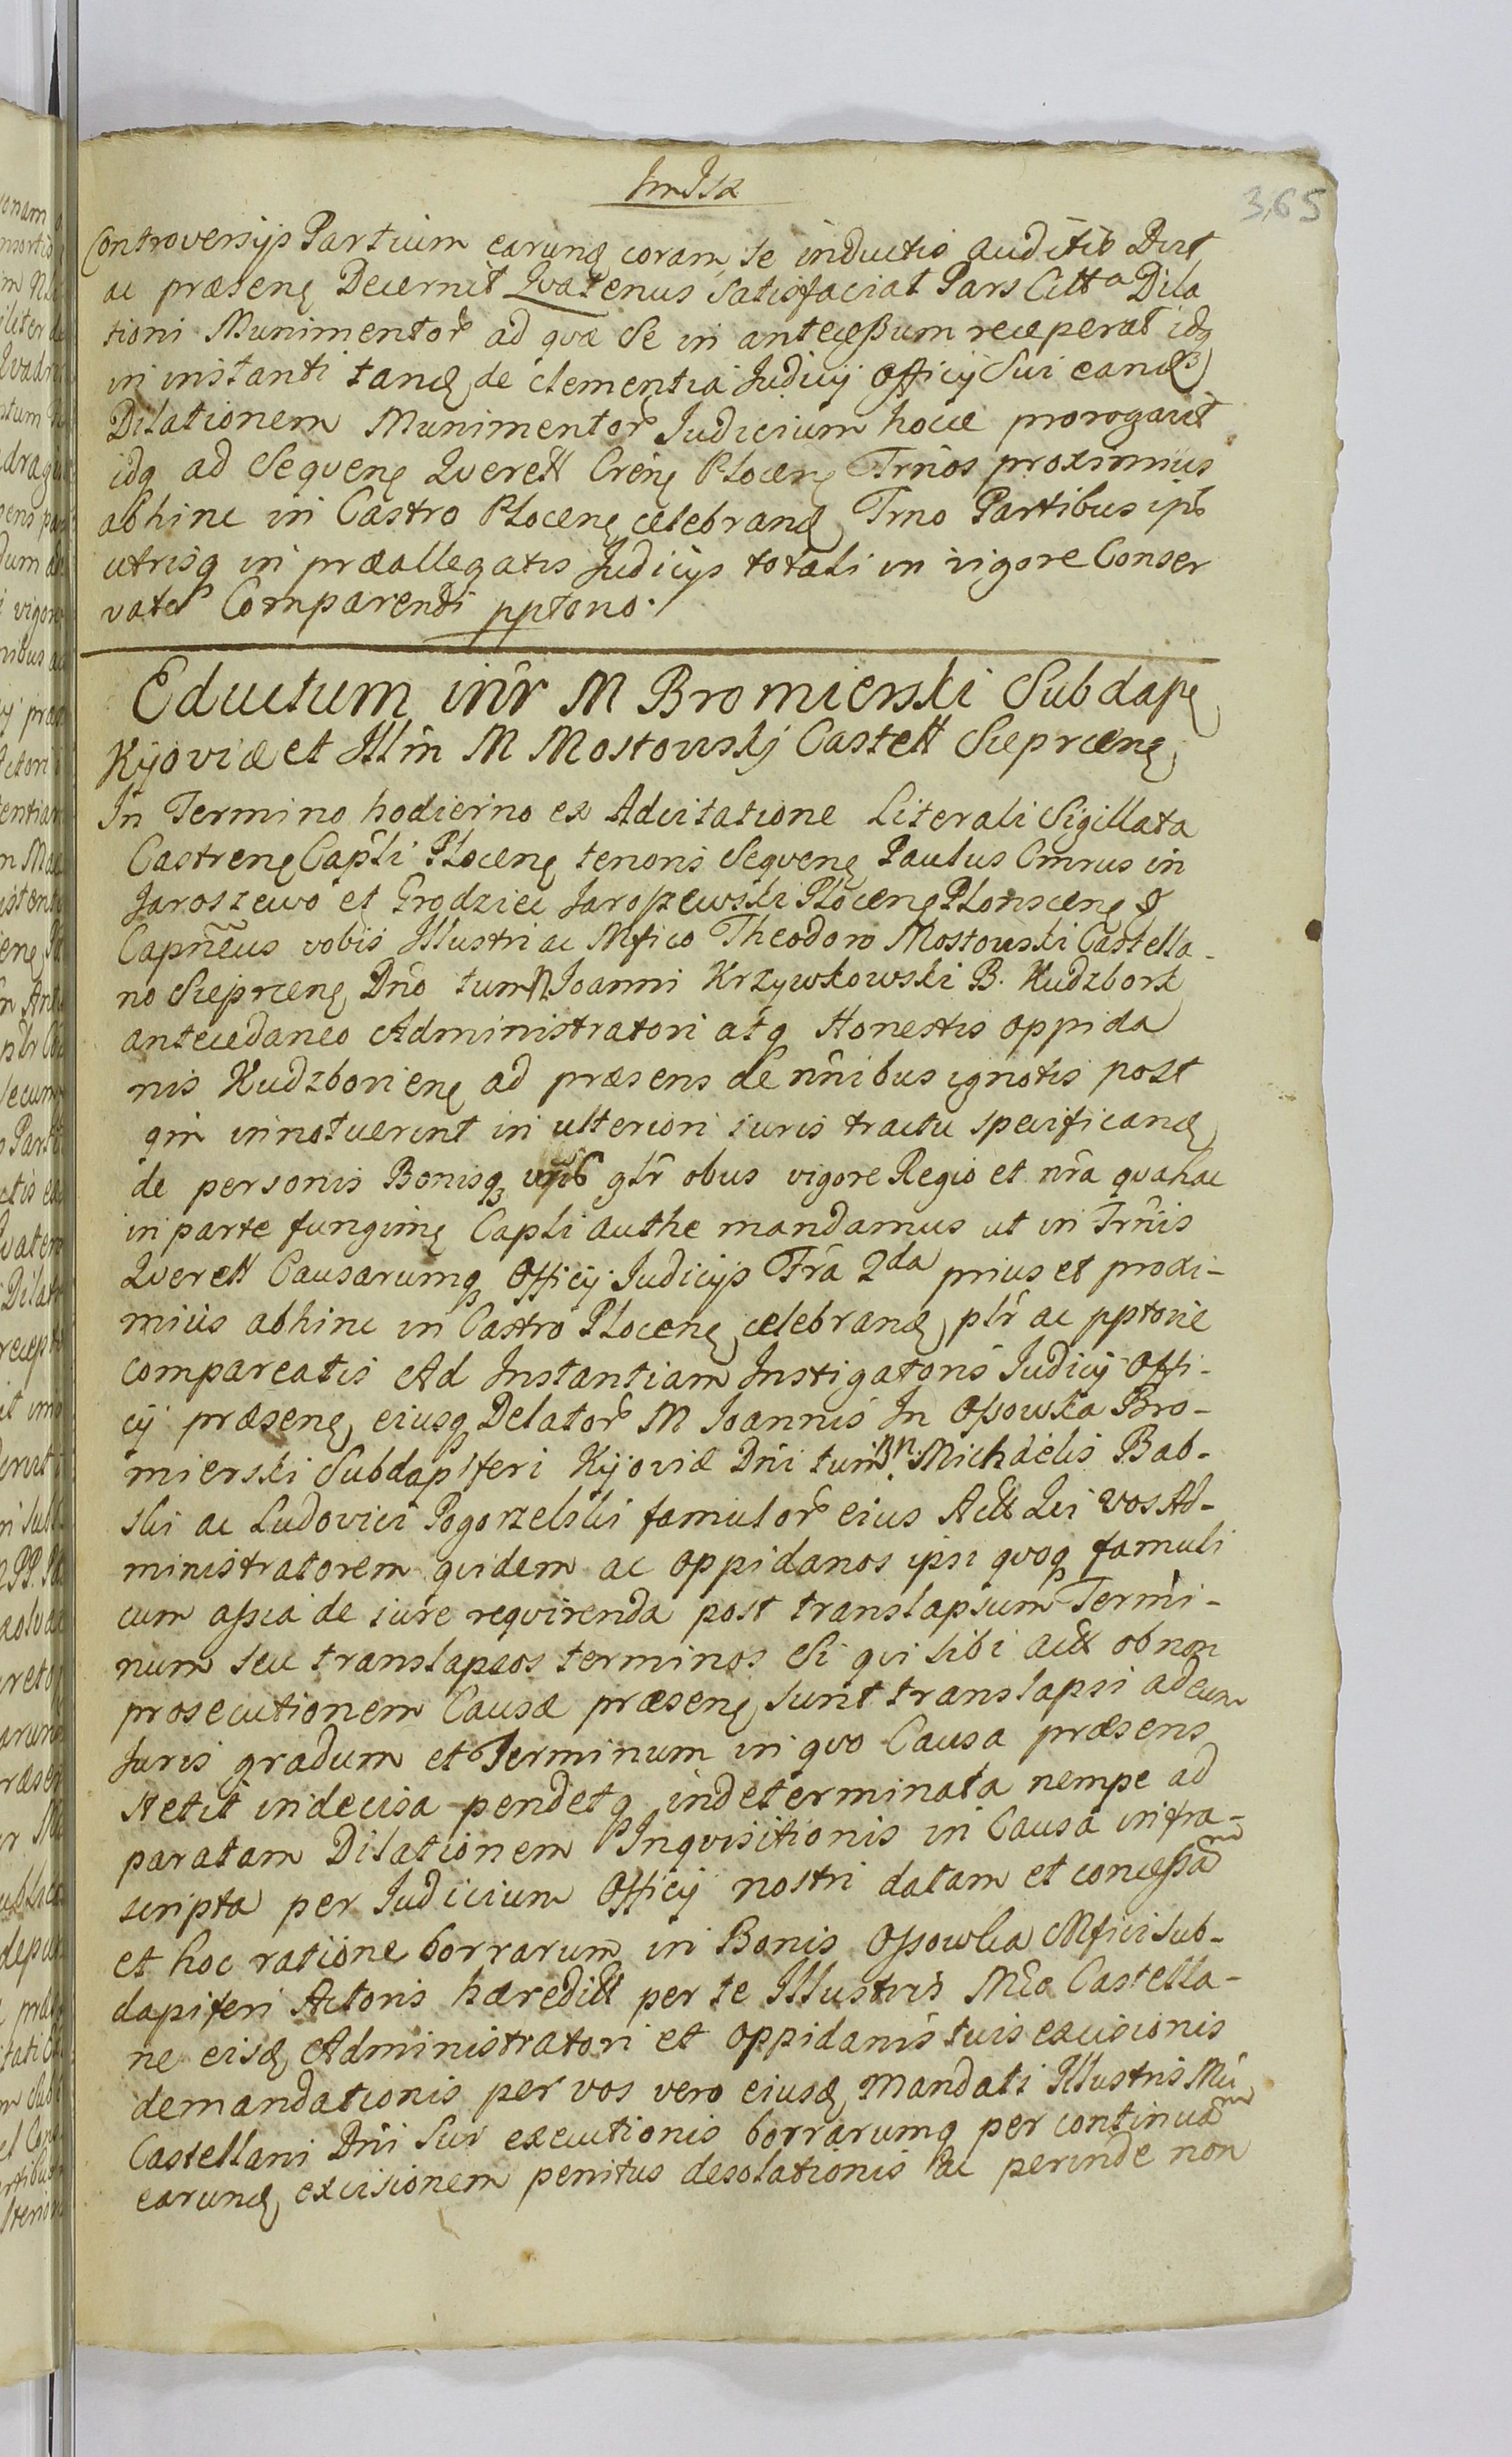 365
Controversys Partium earund coram se inductis auditis Dict
ac præsens Decernit Qvatenus satisfaciat Pars Citta Dila
tioni Munimentor ad qvæ se in antecessum receperat idq
in instanti tand de clementia Judicij Officij Sui eand
Dilationem Munimentor Judicium hocce prorogavit
idq ad Seqvens Qverell Crens Plocens Trnos proximius
abhinc in Castro Plocens celebrand Trno Partibus ips
utrisq in præallegatis Judicijs totali in vigore Conser
vato Comparendi pptorio.
Eductum intr M Bromierski Subdap
Kijoviæ et Illm M Mostowskj Castell Sieprcens
In Termino hodierno ex Adcitatione Literali Sigillata
Castrens Capli Plocens tenoris seqvens Paulus Comrus in
Jaroszewo et Grodziec Jaroszewski Plocens Plonscens
Capneus vobis Illustri ac Mfico Theodoro Mostowski Castella-
no Sieprcens Dno tum N Joanni Krzywkowski B. Kudzbork
antecedaneo Administratori atq Honestis oppida
nis Kudzboriens ad præsens de nnibus ignotis post
qm innotuerint in ulteriori iuris tractu specificand
de personis Bonisq vris glr obus vigore Regio et nra qva hac
in parte fungimr Capli authe mandamus ut in Trnis
Qverell Causarumq Officij Judicijs Fra 2da prius et proxi-
mius abhinc in Castro Plocens celebrand plr ac pptorie
compareatis Ad Instantiam Instigatoris Judicij Offi-
cij præsens, eiusq Delator M Joannis In Ossowka Bro-
mierski Subdapiferi Kijoviæ Dni tum NN. Michaelis Bab-
ski ac Ludovici Pogorzelski famulor eius Act Qui vos Ad-
ministratorem qvidem ac oppidanos ipsi qvoq famuli
cum assia de iure reqvirenda post translapsum Termi-
num seu translapsos terminos si qvi sibi act ob non
prosecutionem Causæ præsens sunt translapsi ad eum
Juris gradum et Terminum in qvo Causa præsens
stetit indecisa pendetq indeterminata nempe ad
paratam Dilationem Inqvisitionis in Causa infra-
scripta per Judicium Officij nostri datam et concessam
et hoc ratione borrarum in Bonis Ossowka Mfici sub-
dapiferi Actoris hæredit per te Illustris Mce Castella-
ne eisd Administratori et oppidanis tuis excisionis
demandationis per vos vero eiusd Mandati Illustris Mci
Castellani Dni sui executionis borrarumq per continuam
earund excisionem penitus desolationis ac perinde non